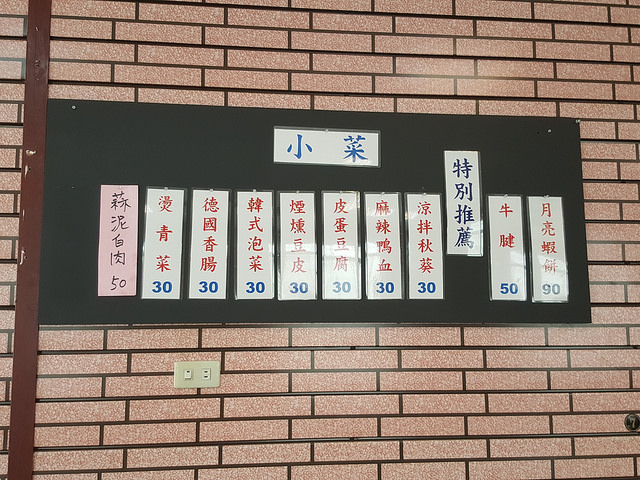 小菜
特別推薦
月亮蝦餅 90
牛腱 50
涼拌秋葵 30
麻辣鴨血 30
皮蛋豆腐 30
煙燻豆皮 30
韓式泡菜 30
德國香腸 30
燙青菜 30
蒜泥白肉 50